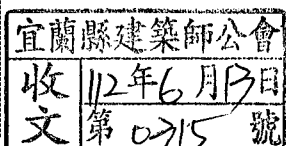 宜蘭縣建築師公會
收文
112年6月13日
第0315號